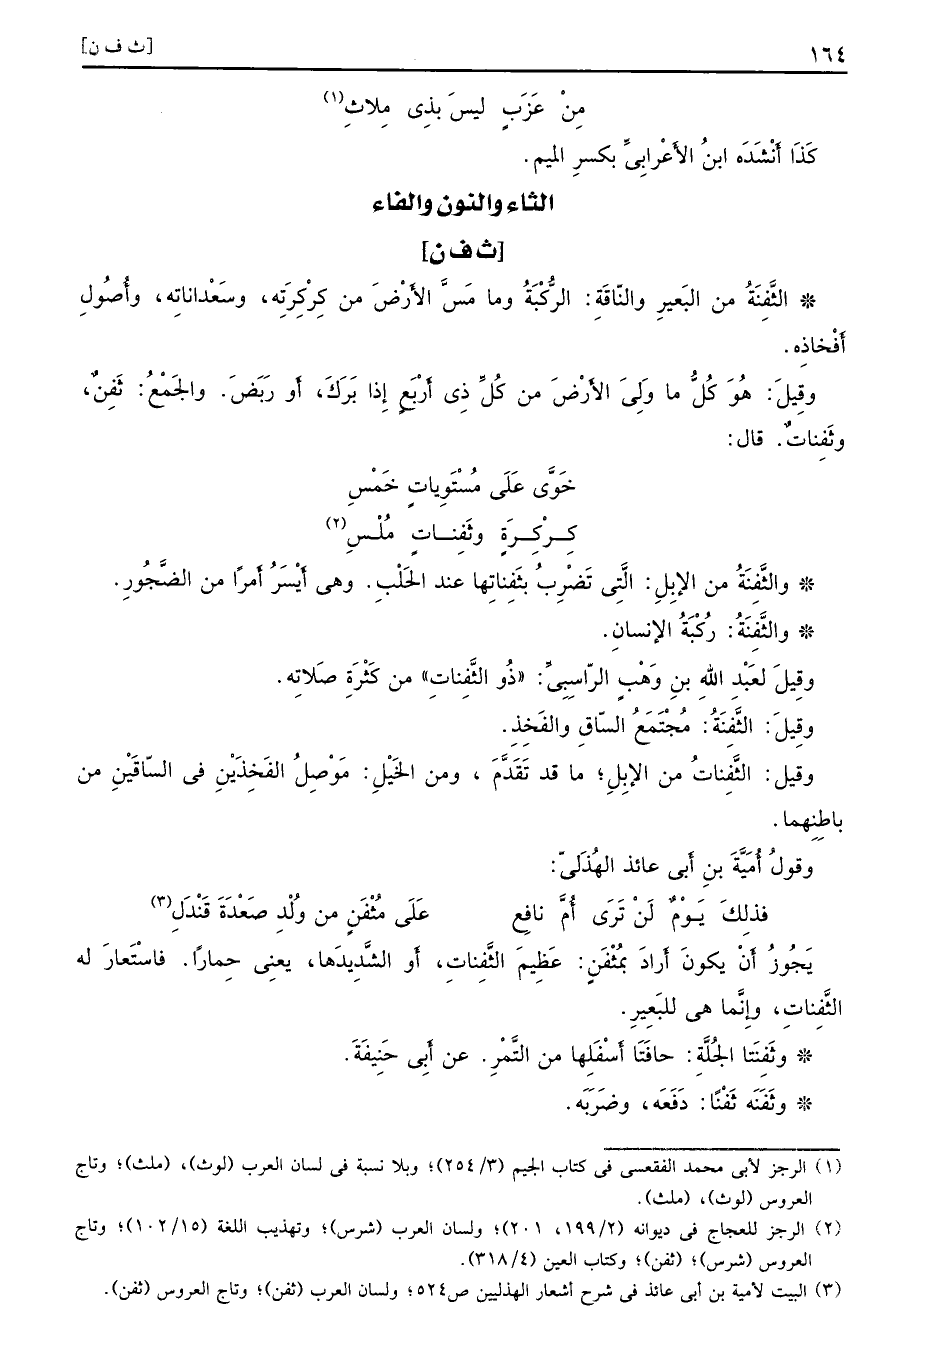 ١٦٤ [ث ف ن]
مِنْ عَزَبٍ ليسَ بذِى مِلاثِ(١)
كَذَا أَنْشَدَه ابنُ الأَعْرابىِّ بكسرِ الميم.
الثاء والنون والفاء
[ث ف ن]
* الثَّفِنَةُ من البَعيرِ والنّاقَةِ: الرُّكْبَةُ وما مَسَّ الأَرْضَ من كِرْكِرَتِه، وسَعْداناتِه، وأُصُولِ
أَفْخاذِه.
وقِيلَ: هُوَ كُلُّ ما وَلِىَ الأَرْضَ من كُلِّ ذِى أَرْبَعٍ إذا بَرَكَ، أو رَبَضَ. والجَمْعُ: ثَفِنٌ،
وثَفِناتٌ. قال:
خَوَّى عَلَى مُسْتَوِياتٍ خَمْسِ
كِــرْكِــرَةٍ وثَفِنــاتٍ مُلْـسِ(٢)
* والثَّفِنَةُ من الإبِلِ: الَّتِى تَضْرِبُ بثَفِناتِها عند الحَلْبِ. وهى أَيْسَرُ أمرًا من الضَّجُورِ.
* والثَّفِنَةُ: رُكْبَةُ الإنسانِ.
وقِيلَ لعَبْدِ اللهِ بنِ وَهْبٍ الرّاسِبىِّ: «ذُو الثَّفِناتِ» من كَثْرَةِ صَلاتِه.
وقِيلَ: الثَّفِنَةُ: مُجْتَمَعُ السّاقِ والفَخِذِ.
وقيل: الثَّفِناتُ من الإبِلِ؛ ما قد تَقَدَّمَ ، ومن الخَيْلِ: مَوْصِلُ الفَخِذَيْنِ فى السّاقَيْنِ من
باطِنِهِما.
وقولُ أُمَيَّةَ بنِ أَبى عائذ الهُذَلىّ:
فذلِكَ يَـوْمٌ لَنْ تَرَى أُمَّ نافِعٍ عَلَى مُثْفَنٍ من وُلْدِ صَعْدَةَ قَنْدَلِ(٣)
يَجُوزُ أَنْ يكونَ أَرادَ بمُثْفَنٍ: عَظِيمَ الثَّفِناتِ، أو الشَّدِيدَها، يعنِى حمارًا. فاسْتَعارَ له
الثَّفِناتِ، وإنَّما هى للبَعِيرِ.
* وثَفِنَتا الجُلَّةِ: حافَتَا أَسْفَلِها من التَّمْرِ. عن أَبِى حَنِيفَةَ.
* وثَفَنَه ثَفْنًا: دَفَعَه، وضَرَبَه.
(١) الرجز لأبى محمد الفقعسى فى كتاب الجيم (٣/ ٢٥٤)؛ وبلا نسبة فى لسان العرب (لوث)، (ملث)؛ وتاج
العروس (لوث)، (ملث).
(٢) الرجز للعجاج فى ديوانه (٢/ ١٩٩، ٢٠١)؛ ولسان العرب (شرس)؛ وتهذيب اللغة (١٥/ ١٠٢)؛ وتاج
العروس (شرس)؛ (ثفن)؛ وكتاب العين (٤/ ٣١٨).
(٣) البيت لأمية بن أبى عائذ فى شرح أشعار الهذليين ص٥٢٤؛ ولسان العرب (ثفن)؛ وتاج العروس (ثفن).